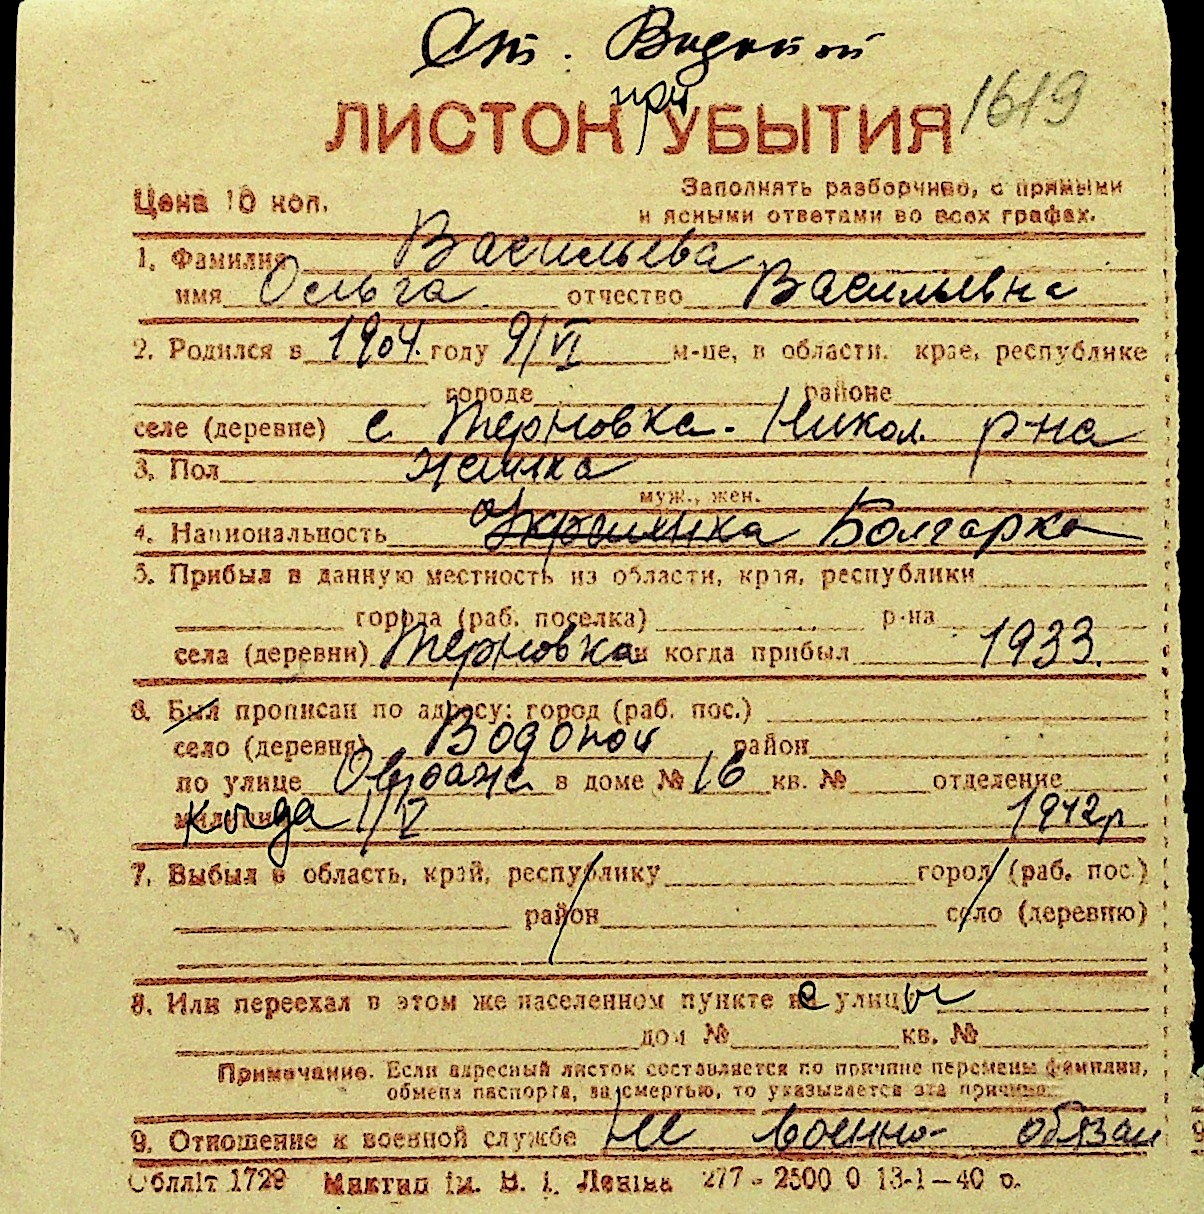 Ст. Водопой
при
ЛИСТОК УБЫТИЯ 1619
Цена 10 коп.
Заполнять разборчиво, с прямыми
и ясными ответами во всех графах.
1. Фамилия Васильева
имя Ольга отчество Васильевна
2. Родился в 1904. году 9/VI м-це, в области, крае, республике
городе районе
селе (деревне) с. Терновка. Никол. р-на
3. Пол женска
муж., жен.
4. Национальность Украинка Болгарка
5. Прибыл в данную местность из области, края, республики
города (раб. поселка) р-на
села (деревни) Терновка и когда прибыл 1933.
6. Был прописан по адресу: город (раб. пос.)
село (деревня) Водопой район
по улице Овраже в доме № 16 кв. № отделение
милиции когда 1/V 1942 р
7. Выбыл в область, край, республику город (раб. пос.)
район село (деревню)
8. Или переехал в этом же населенном пункте с улицы
дом № кв. №
Примечание. Если адресный листок составляется по причине перемены фамилии,
обмена паспорта, за смертью, то указывается эта причина.
9. Отношение к военной службе Не военно-обязан
Облліт 1729 Миктип ім. В. І. Леніна 277 - 2500 0 13-1-40 о.